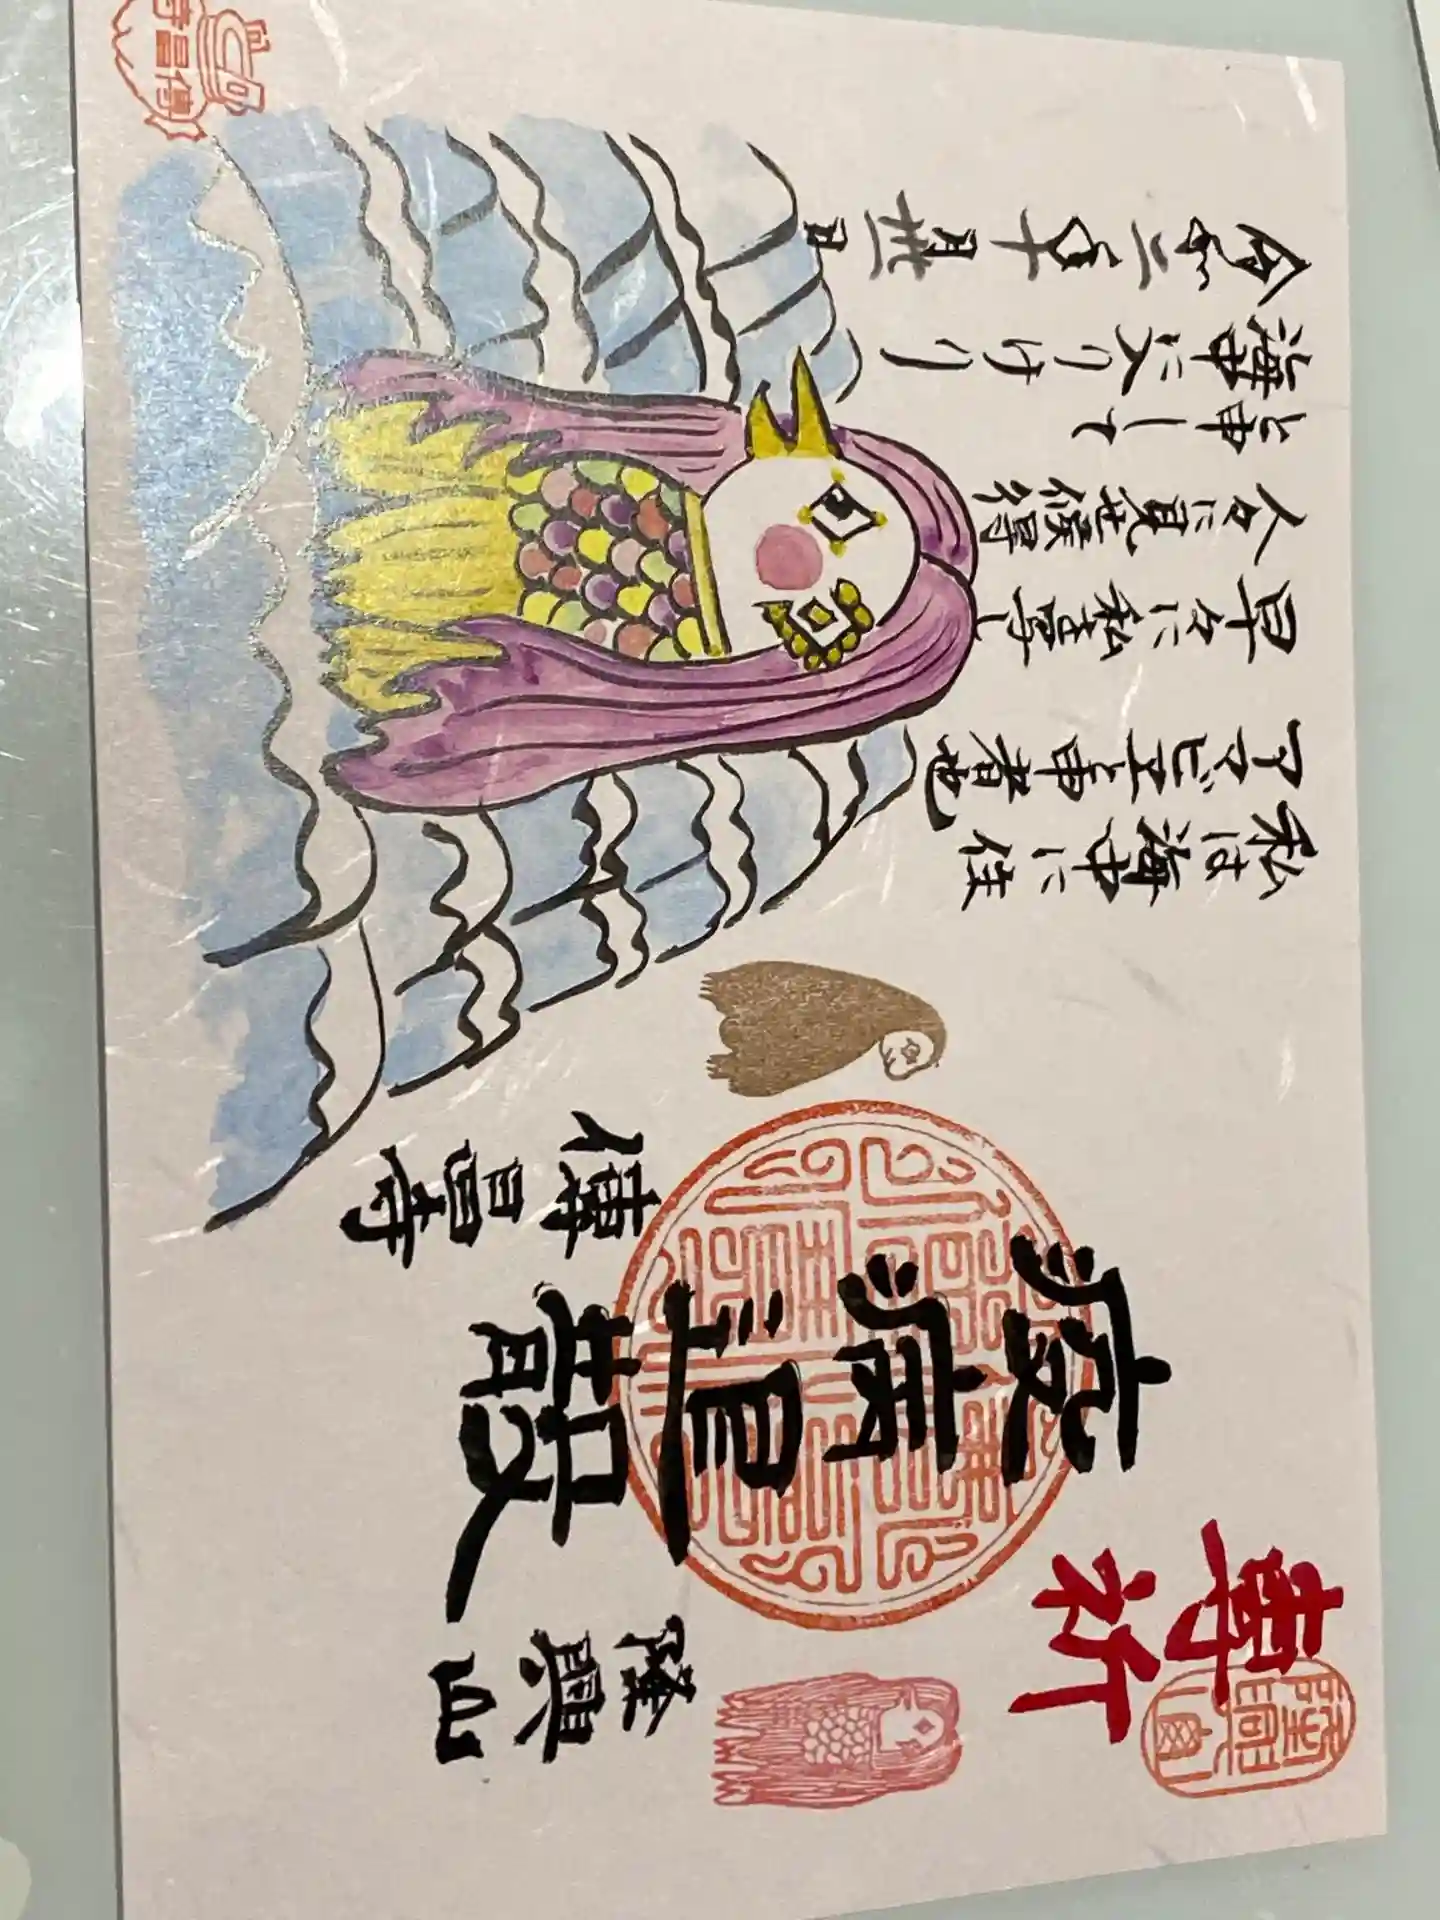 專祈
隆興山
隆興山
疫病退散
傳昌寺
私は海中に住
アマビエと申者也
早々に私を写し
人々に見せ候得
と申して
海中に入りけり
令和二年十月卅一日
傳昌寺